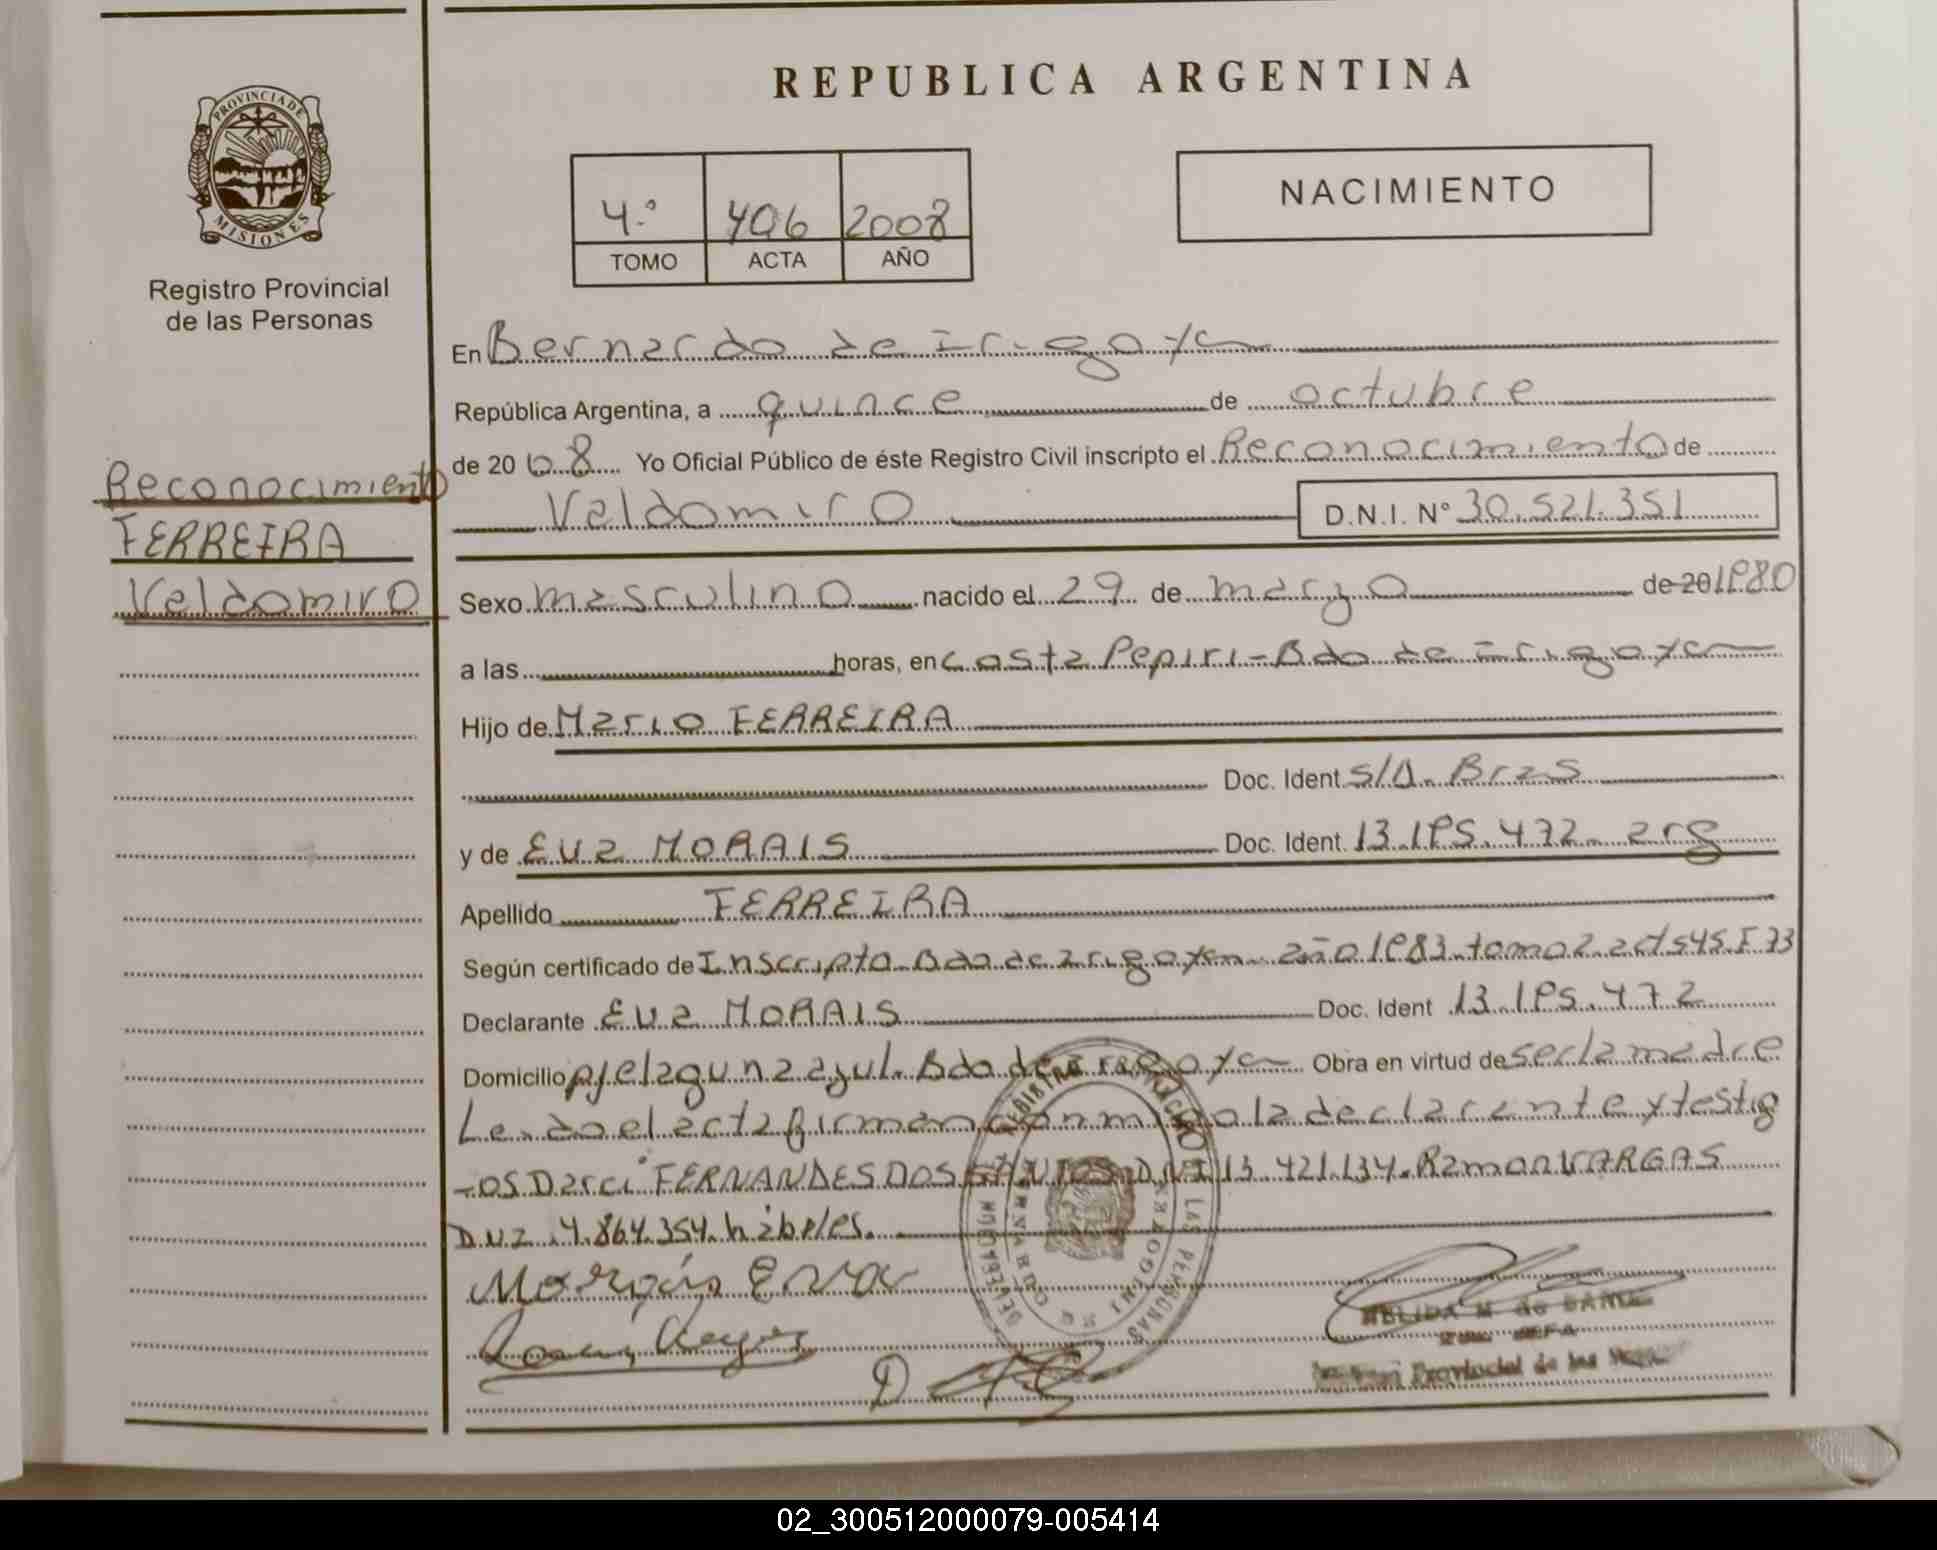 REPUBLICA ARGENTINA
PROVINCIA DE
MISIONES
Registro Provincial
de las Personas
4.° 406 2008
TOMO ACTA AÑO
NACIMIENTO
Reconocimiento
FERREIRA
Valdomiro
En Bernardo de Irigoyen
República Argentina, a quince de octubre
de 20 08 Yo Oficial Público de éste Registro Civil inscripto el Reconocimiento de
Valdomiro D.N.I. N° 30.521.351
Sexo masculino nacido el 29 de marzo de 20 1980
a las horas, en Costa Pepiri-Bdo de Irigoyen
Hijo de Mario FERREIRA
Doc. Ident S/D. Bras
y de Eva MORAIS Doc. Ident. 13.195.472 arg
Apellido FERREIRA
Según certificado de Inscripto Bdo de Irigoyen año 1983 tomo 2 acta 545 F 73
Declarante Eva MORAIS Doc. Ident 13.195.472
Domicilio pje laguna azul. Bdo de Irigoyen Obra en virtud de ser la madre
Leido el acta firman conmigo la declarante y testig
-os Darci FERNANDES DOS SANTOS DNI 13.421.134. Ramon VARGAS
4.864.354. hábiles.
Morais Eva
REGISTRO PROVINCIAL DE LAS PERSONAS
Provincial de las
02_300512000079-005414